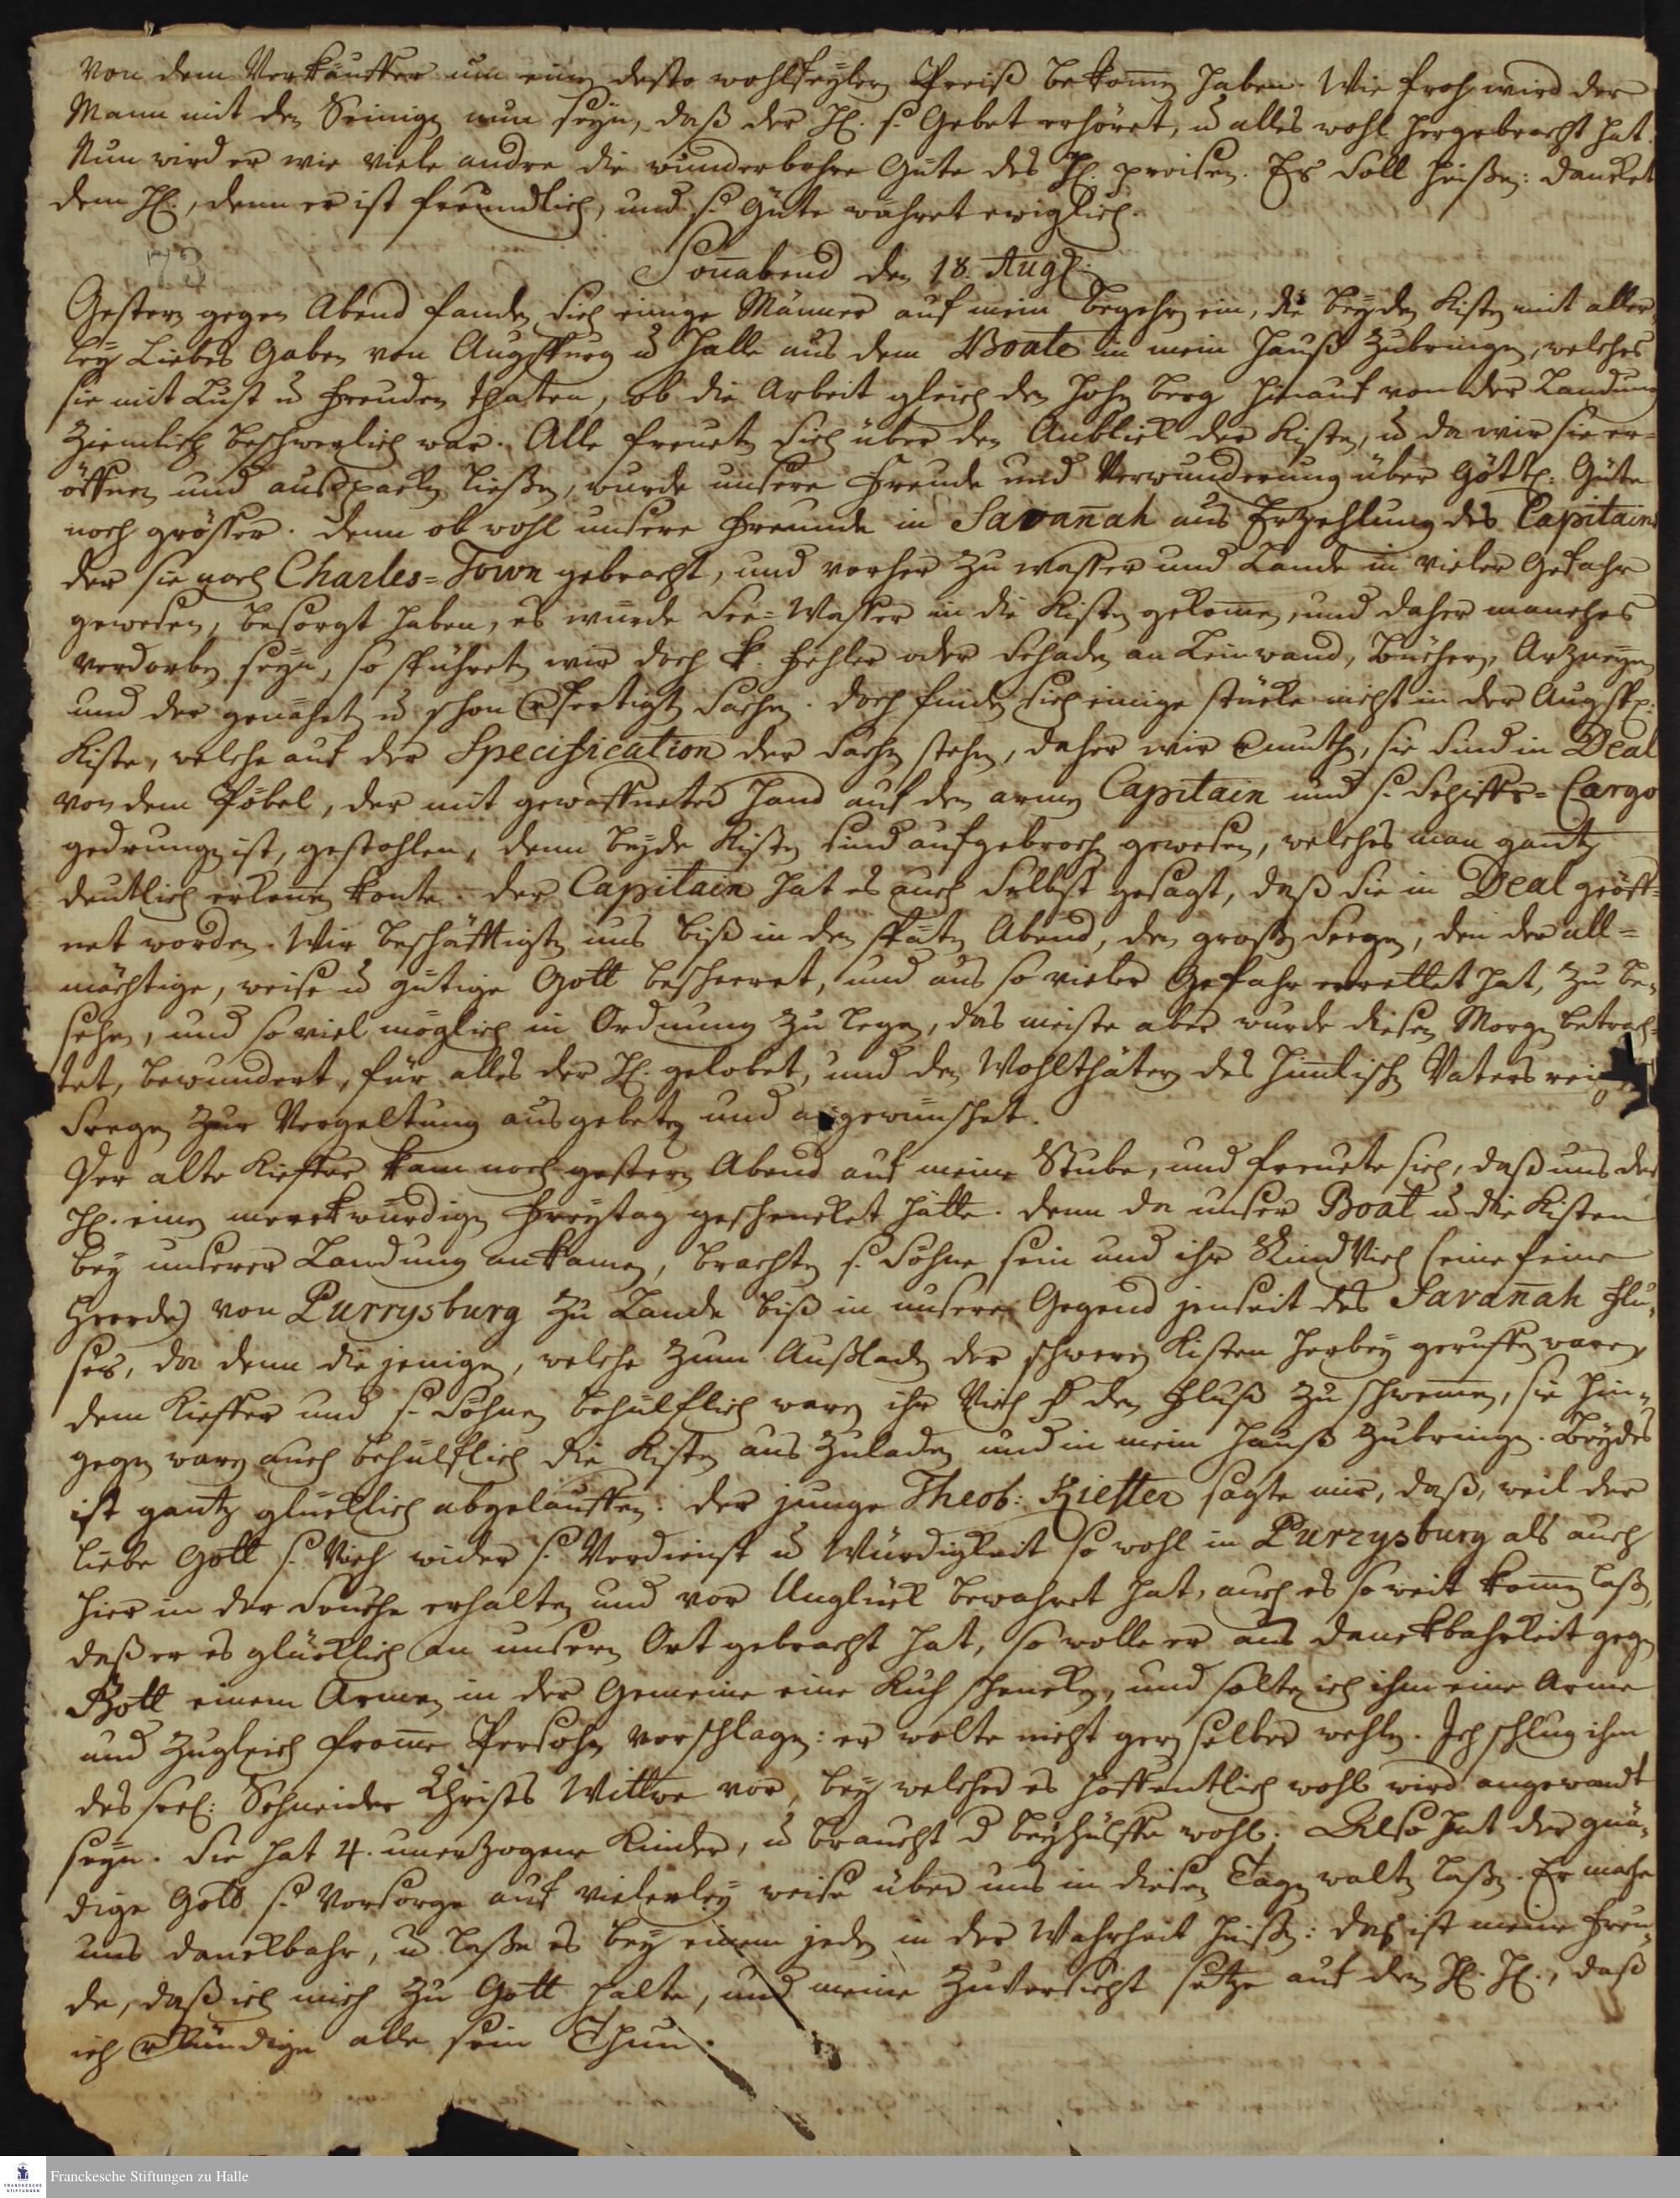 von dem Verkäuffer um einen desto wohlfeylern Preiß bekom̄en haben. Wie froh wird der
Mann mit den Seinigen nun seyn, daß der HE. s. Gebet erhöret, u. alles wohl hergebracht hat.
Nun wird er wie viele andre die wunderbahre Güte des HE. preisen. Es soll heißen: dancket
dem HE., denn er ist freundlich, und s. Güte währet ewiglich.
73
Son̄abend den 18. Aug:
Gestern gegen Abend fanden sich einige Männer auf mein begehren ein, die beyden Kisten mit aller-
ley Liebes Gaben von Augspurg u. Halle aus dem Boate in mein Hauß zubringen, welches
sie mit Lust u. Freuden thaten, ob die Arbeit gleich den hohen berg hinauf von der Landung
ziemlich beschwerlich war. Alle freueten sich über den Anblick der Kisten, u. da wir sie er-
öffnen und außpacken ließen, wurde unsere Freude und Verwunderung über Göttl: Güte
noch grösser. Denn ob wohl unsere Freunde in Savan̄ah aus Erzehlung des Capitains
der sie nach Charles-Town gebracht, und vorher zu wasser und Lande in vieler Gefahr
gewesen, besorgt haben, es würde See-Wasser in die Kisten gekom̄en, und daher manches
verdorben seyn, so spühreten wir doch k. Fehler oder Schaden an Leinwand, Büchern, Arzneyen
und der genäheten u. schon verfertigten Sachen. Doch finden sich einige stücke nicht in der Augsp:
Kiste, welche auf der Specification der Sachen stehen, daher wir vermuthen, sie sind in Deal
von dem Pöbel, der mit gewaffneter Hand auf den armen Capitain und s. Schiffs-Cargo
gedrungen ist, gestohlen, denn beyde Kisten sind aufgebrochen gewesen, welches man gantz
deutlich erken̄en konte. Der Capitain hat es auch selbst gesagt, daß sie in Deal geöff-
net worden. Wir beschäfftigten uns biß in den späten Abend, den großen Seegen, den der all-
mächtige, weise u. gütige Gott bescheeret, und aus so vieler Gefahr errettet hat, zu be-
sehen, und so viel möglich in Ordnung zu legen, das meiste aber wurde diesen Morgen betrach-
tet, bewundert, für alles der HE. gelobet, und den Wohlthätern des him̄lischen Vaters
Seegen zur Vergeltung ausgebeten und angewünschet.
Der alte Kieffer kam noch gestern Abend auf meine Stube, und freuete sich, daß uns der
HE. einen merckwürdigen Freytag geschencket hätte. Denn da unser Boat u. die Kisten
bey unserer Landung ankamen, brachten s. Söhne sein und ihr Rind Vieh (eine feine
Heerde) von Purrysburg zu Lande biß in unsere Gegend jenseit des Savan̄ah Flu-
ses, da denn die jenigen, welche zum Außladen der schweren Kisten herbey geruffen waren,
dem Kieffer und s. Söhnen behülflich waren ihr Vieh über den Fluß zu schwem̄en, sie hin-
gegen waren auch behülflich die Kisten aus zuladen und in mein Hauß zubringen. Beydes
ist gantz glücklich abgelauffen. Der junge Theob: Kieffer sagte mir, daß, weil der
liebe Gott s. Vieh wider s. Verdienst u. Würdigkeit so wohl in Purrysburg als auch
hier in der Seuche erhalten und vor Unglück bewahret hat, auch es so weit kom̄en laßen,
daß er es glücklich an unsern Ort gebracht hat, so wolle er aus danckbahrkeit gegen
Gott einem Armen in der Gemeine eine Kuh schencken, und solte ich ihm eine Arme
und zugleich from̄e Persohn vorschlagen: er wolte nicht gern selber wehlen. Ich schlug ihm
des seel: Schneider Christs Wittwe vor, bey welcher es hoffentlich wohl wird angewandt
seyn. Sie hat 4. unerzogene Kinder, u. braucht d. beyhülffe wohl. Also hat der gnä-
dige Gott s. Vorsorge auf vielerley weise über uns in diesen Tagen walten laßen. Er mache
uns danckbahr, u. laße es bey einem jeden in der Wahrheit heißen: das ist meine Freu-
de, daß ich mich zu Gott halte, und meine Zuversicht setze auf den HE. HE., daß
ich verkündige alle sein Thun.
Franckesche Stiftungen zu Halle
FRANCKESCHE STIFTUNGEN